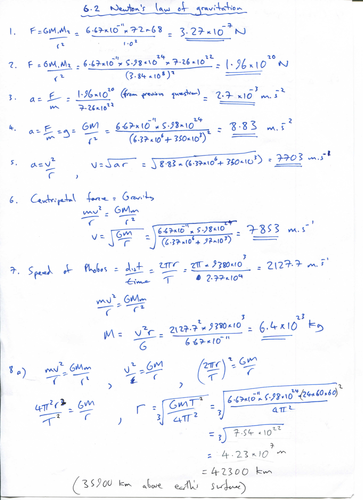 6.2 Newton's law of gravitation
1. F = GM₁M₂/r² = 6.67×10⁻¹¹ × 72 × 68/1.0² = 3.27×10⁻⁷ N
2. F = GM₁M₂/r² = 6.67×10⁻¹¹ × 5.98×10²⁴ × 7.26×10²²/(3.84×10⁸)² = 1.96×10²⁰ N
3. a = F/m = 1.96×10²⁰ (from previous question)/7.26×10²² = 2.7×10⁻³ m.s⁻²
4. a = F/m = g = GM/r² = 6.67×10⁻¹¹ × 5.98×10²⁴/(6.37×10⁶ + 350×10³)² = 8.83 m.s⁻²
5. a = v²/r , v = √ar = √8.83 × (6.37×10⁶ + 350×10³) = 7703 m.s⁻¹
6. Centripetal force = Gravity
mv²/r = GMm/r²
v = √GM/r = √6.67×10⁻¹¹ × 5.98×10²⁴/(6.37×10⁶ + 97×10³) = 7853 m.s⁻¹
7. Speed of Phobos = dist/time = 2πr/T = 2π × 9380×10³/2.77×10⁴ = 2127.7 m.s⁻¹
mv²/r = GMm/r²
M = v²r/G = 2127.7² × 9380×10³/6.67×10⁻¹¹ = 6.4×10²³ kg
8 a) mv²/r = GMm/r² , v² = GM/r , (2πr/T)² = GM/r
4π²r²/T² = GM/r , r = ³√GMT²/4π² = ³√6.67×10⁻¹¹ × 5.98×10²⁴ × (24×60×60)²/4π²
= ³√7.54×10²²
= 4.23×10⁷ m
= 42300 km
(35900 km above earth's surface)